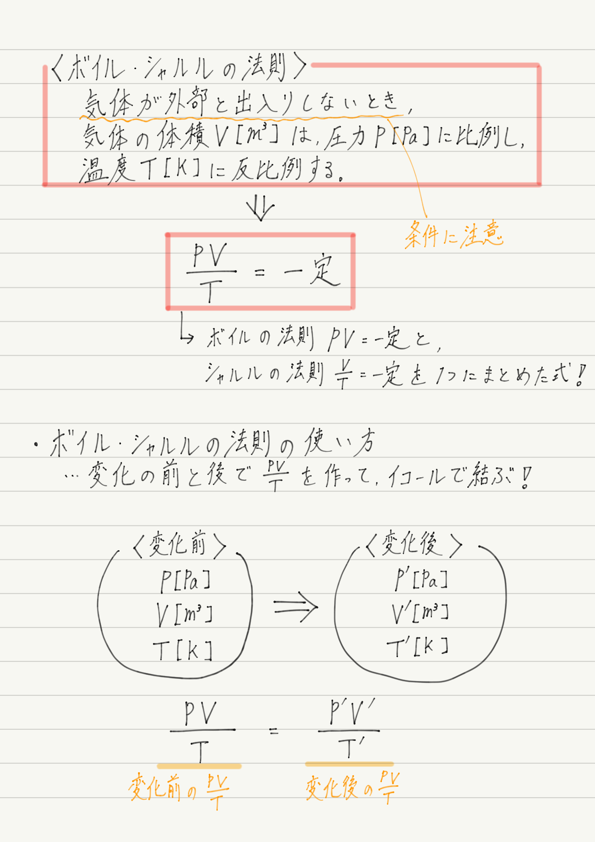 〈ボイル・シャルルの法則〉
気体が外部と出入りしないとき,
気体の体積V[m³]は,圧力P[Pa]に比例し,
温度T[K]に反比例する。
⇓
条件に注意
PV/T = 一定
↳ ボイルの法則 PV=一定と,
シャルルの法則 V/T=一定を1つにまとめた式!
・ボイル・シャルルの法則の使い方
…変化の前と後で PV/T を作って,イコールで結ぶ!
〈変化前〉 〈変化後〉
P[Pa] P'[Pa]
V[m³] ⇒ V'[m³]
T[K] T'[K]
PV/T = P'V'/T'
変化前の PV/T 変化後の PV/T